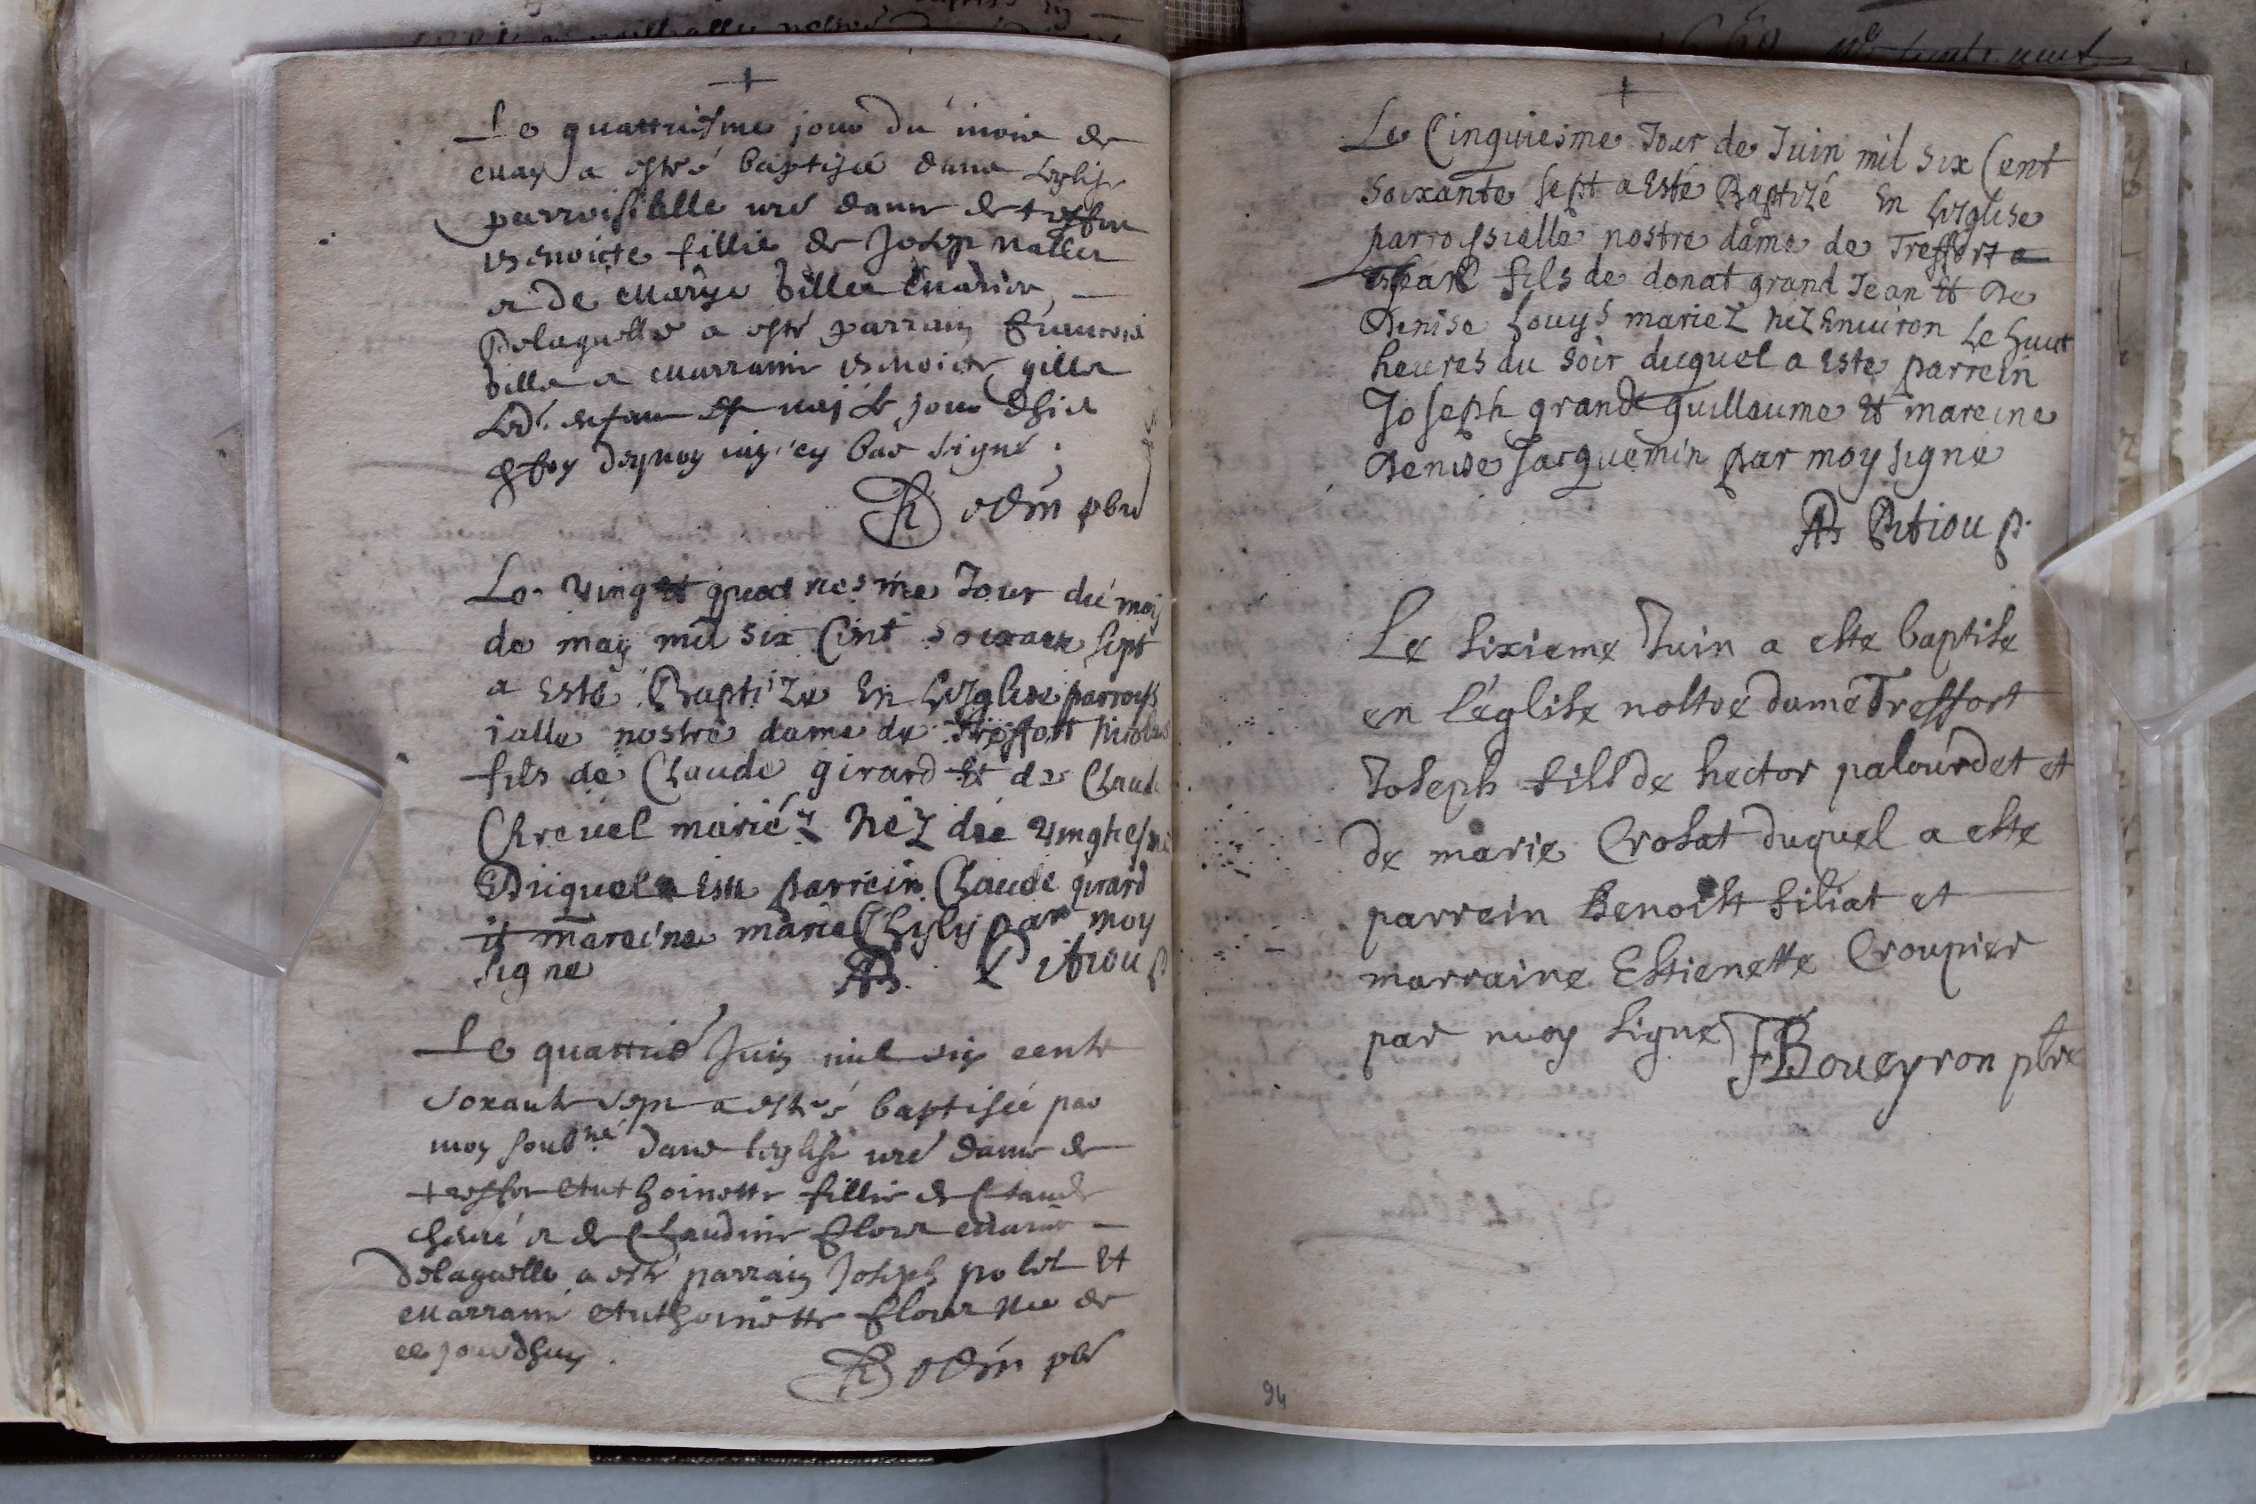 Le quattriesme jour du mois de
may a esté baptisée dans leglise
parroissialle nre dame de treffor
benoite fillie de Joseph
et de Marye billet Mariés
Delaquelle a esté parrain francois
billet et marraine benoite gillet
led. enfant est naj le jour dhier
par moy cy bas signé
Bodin pbre
Le vingt quatriesme Jour du mois
de may mil six Cent soixante sept
a Esté Baptize En Leglise parroiss
ialle nostre dame de Treffort nicolas
fils de Claude girard Et de Claud
Chrevel mariéz néz die vinghesme
Duquel a Este parrein Claude girard
et mareine marie par moy
signe Pitiou p
Le quattrie Juin mil six cents
soxante sept a esté baptisée par
moy soubné dans leglise nre dame de
treffor Anthoinette fillie de Claude
et de Claudine flour mariés
Delaquelle a esté parrain Joseph polet Et
Marraine Anthoinette flour Nee de
ce jourdhuy.
Bodin pbr
Le Cinquiesme Jour de Juin mil six Cent
soixante sept a Esté Baptizé En Leglise
parrossialle nostre dame de Treffort
fils de donat grand Jean Et de
Denise Louys mariez nez Enuiron Le huit
heures du soir duquel a Este parrein
Joseph grand guillaume Et mareine
Denise Jacquemin par moy signe
Pitiou p.
Le sixieme Juin a este baptise
en l'eglise nostre dame Treffort
Joseph fils de hector palourdet et
de marie Crosat duquel a este
parrein Benoist filiat et
marraine Estienette Croupier
par moy signe F Boueyron pbre
94